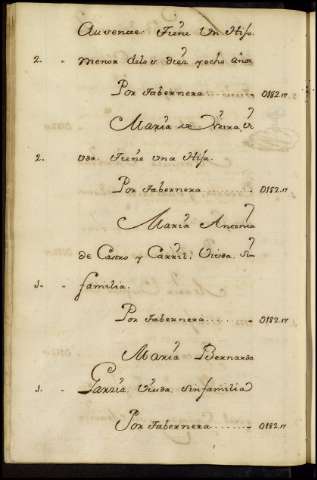 Auvence Tiene Un Hijo
2. - menor delos Diez y ocho años
Por Tabernera - 0182.17
Maria de Neira Vi
2. - uda. Tiene una Hija.
Por Tabernera - 0182.17
Maria Antonia
de Castro y Carril, Viuda, sin
1. - familia.
Por Tabernera - 0182.17
Maria Bernarda
1. - Garzia, Viuda, sin familia
Por Tabernera - 0182.17